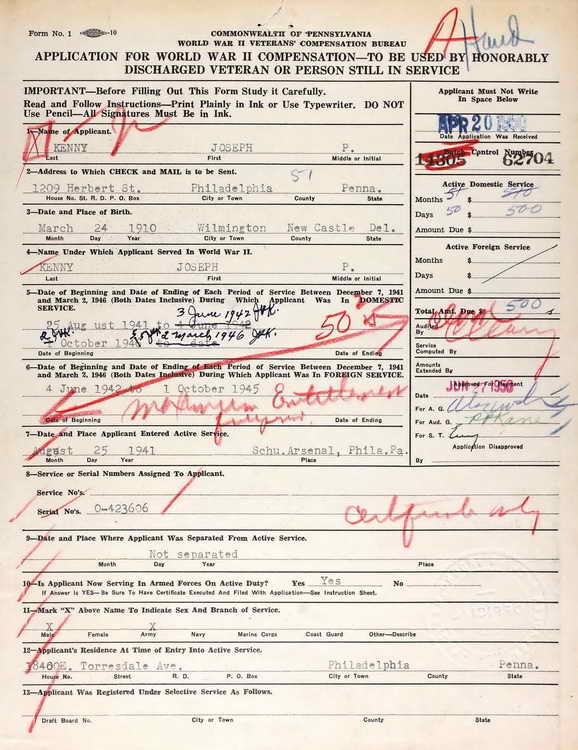 Form No. 1 -10
COMMONWEALTH OF PENNSYLVANIA
WORLD WAR II VETERANS' COMPENSATION BUREAU
APPLICATION FOR WORLD WAR II COMPENSATION—TO BE USED BY HONORABLY
DISCHARGED VETERAN OR PERSON STILL IN SERVICE
IMPORTANT—Before Filling Out This Form Study it Carefully.
Read and Follow Instructions—Print Plainly in Ink or Use Typewriter. DO NOT
Use Pencil—All Signatures Must be in Ink.
Applicant Must Not Write
In Space Below
APR 20 1950
Date Application Was Received
Batch Control Number
14805 62704
1—Name of Applicant.
KENNY JOSEPH P.
Last First Middle or Initial
2—Address to Which CHECK and MAIL is to be Sent.
51
1209 Herbert St. Philadelphia Penna.
House No. St. R.D. P.O. Box City or Town County State
Active Domestic Service
Months $
Days 50 $ 500
Amount Due $
3—Date and Place of Birth.
March 24 1910 Wilmington New Castle Del.
Month Day Year City or Town County State
4—Name Under Which Applicant Served In World War II.
KENNY JOSEPH P.
Last First Middle or Initial
Active Foreign Service
Months $
Days $
Amount Due $
5—Date of Beginning and Date of Ending of Each Period of Service Between December 7, 1941
and March 2, 1946 (Both Dates Inclusive) During Which Applicant Was In DOMESTIC
SERVICE.
3 June 1942 JPK.
25 Aug ust 1941 to 4 June 1942
2 March 1946 JPK.
October 194
Date of Beginning Date of Ending
50
Total Amt. Due $ 500
Audited
By
Service
Computed By
Amounts
Extended By
6—Date of Beginning and Date of Ending of Each Period of Service Between December 7, 1941
and March 2, 1946 (Both Dates Inclusive) During Which Applicant Was In FOREIGN SERVICE.
4 June 1942 to 1 October 1945
Maximum Entitlement
Date of Beginning Date of Ending
Approved For Payment
JUN 7 1950
Date
For A. G.
For Aud. G.
For S. T.
Application Disapproved
By
7—Date and Place Applicant Entered Active Service.
August 25 1941 Schu.Arsenal, Phila.Pa.
Month Day Year Place
8—Service or Serial Numbers Assigned To Applicant.
Service No's.
Serial No's. O-423606
9—Date and Place Where Applicant Was Separated From Active Service.
Not separated
Month Day Year Place
10—Is Applicant Now Serving In Armed Forces On Active Duty? Yes Yes No
If Answer is YES—Be Sure To Have Certificate Executed And Filed With Application—See Instruction Sheet.
11—Mark "X" Above Name To Indicate Sex and Branch of Service.
X X
Male Female Army Navy Marine Corps Coast Guard Other—Describe
12—Applicant's Residence At Time of Entry Into Active Service.
1840 E. Torresdale Ave. Philadelphia Penna.
House No. Street R. D. P. O. Box City or Town County State
13—Applicant Was Registered Under Selective Service As Follows.
Draft Board No. City or Town County State